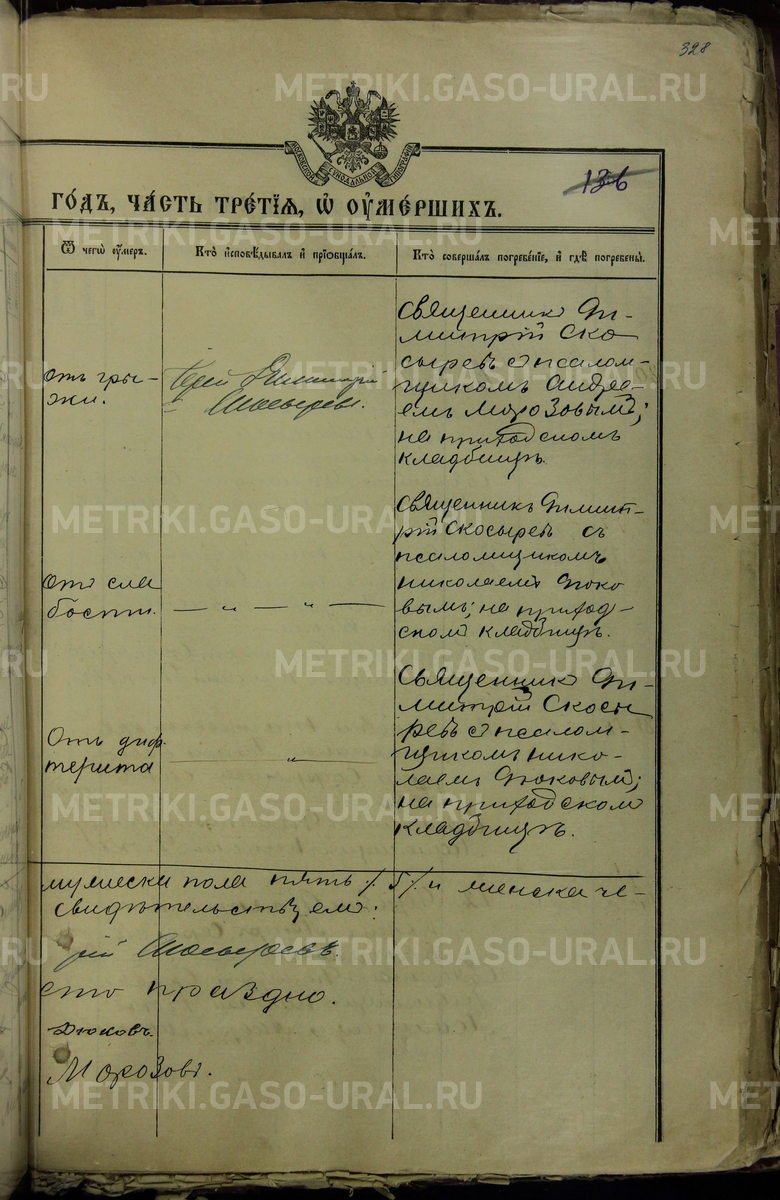 328
136
МОСКОВСКОЙ СѴНОДАЛЬНОЙ ТИПОГРАФІИ
ГОДЪ, ЧАСТЬ ТРЕТІЯ, Ѡ ОУМЕРШИХЪ.
Ѿ чегѡ оумеръ.
Кто исповѣдывалъ и пріобщалъ.
Кто совершалъ погребеніе, и гдѣ погребены.
отъ гры-
жи.
Іерей Димитрій
Скосыревъ.
Священникъ Ди-
митрій Ско
сыревъ с псалом-
щикомъ Андре-
емъ Морозовымъ;
на приходскомъ
кладбищѣ.
Отъ сла
бости.
— „ — „ —
Священникъ Димит-
рій Скосыревъ съ
псаломщикомъ
Николаемъ Дюко-
вымъ; на приход-
скомъ кладбищѣ.
Отъ диф-
терита
— „ —
Священникъ Ди-
митрій Скосы
ревъ с псалом-
щикомъ Нико-
лаемъ Дюковымъ;
на приходском
кладбищѣ.
мужеска пола пять /5/ и женска че-
свидѣтельствуем:
рій Скосыревъ.
сто праздно.
Дюковъ.
Морозовъ.
METRIKI.GASO-URAL.RU